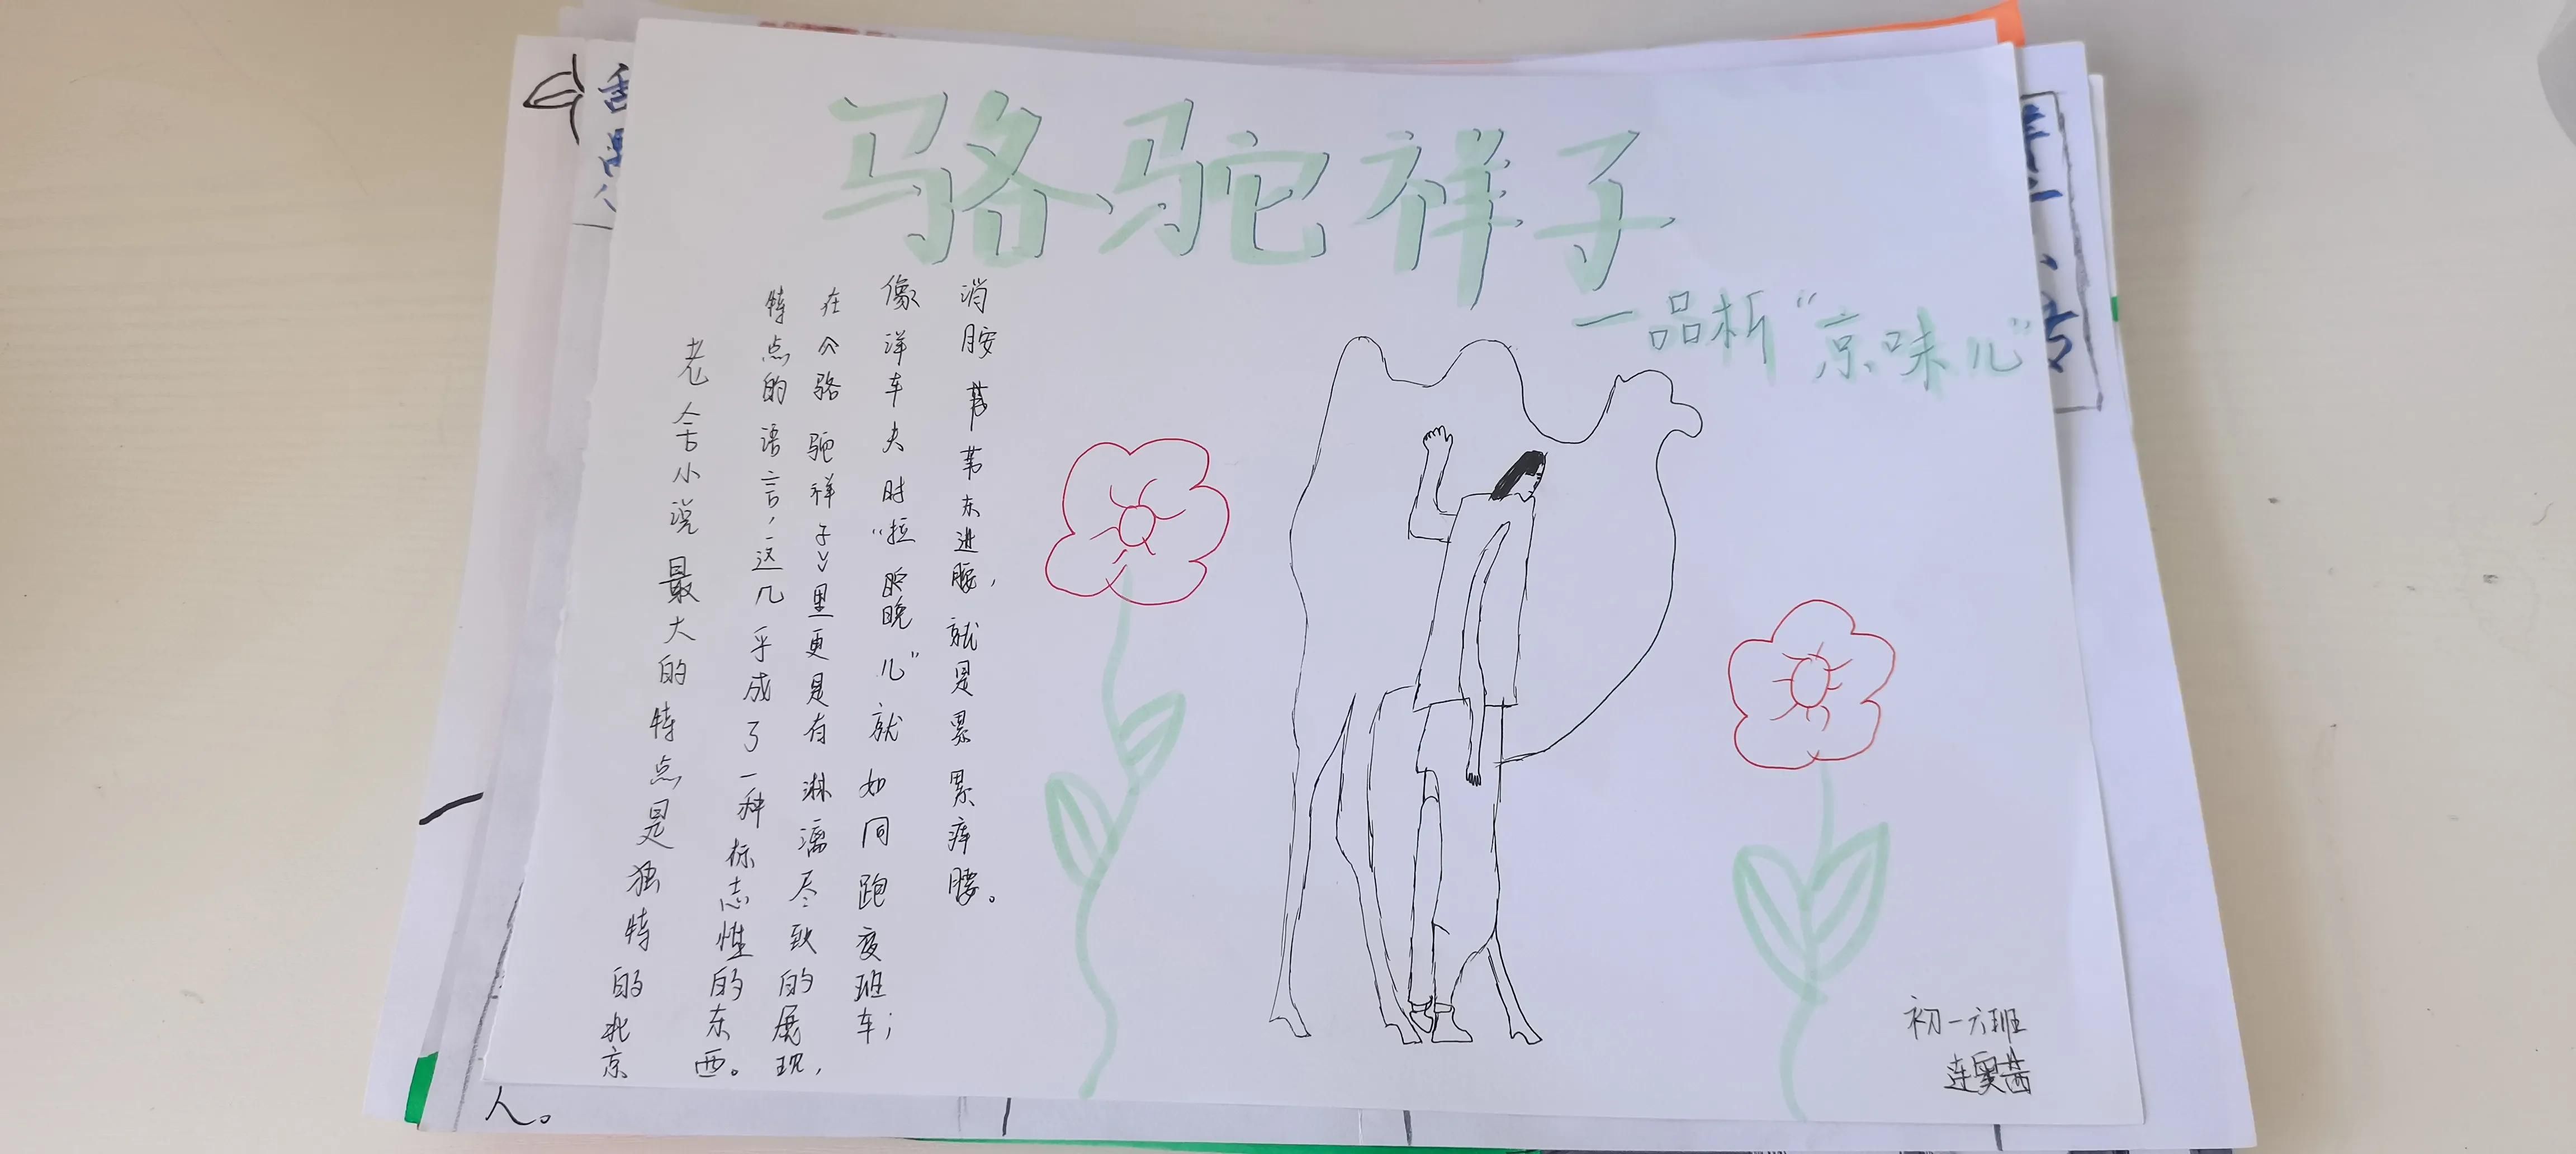 骆驼祥子
一品析“京味儿”
老舍小说最大的特点是独特的北京
特点的语言，这几乎成了一种标志性的东西。
在《骆驼祥子》里更是有淋漓尽致的展现，
像洋车夫时“拉晚儿”就如同跑夜班车；
消胺
东进腿，就是累累疼腰。
初一六班
连奥茜
人。